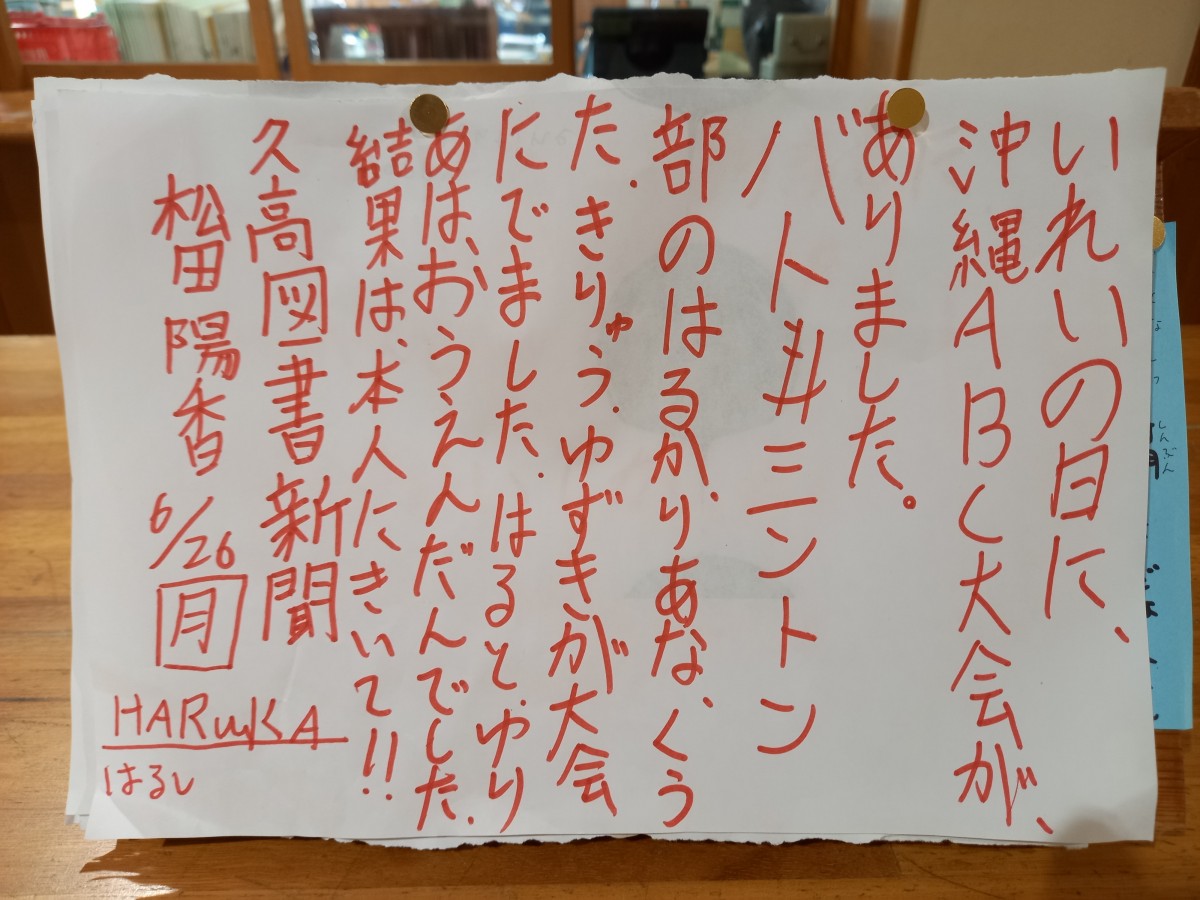 いれいの日に、
沖縄ABC大会が、
ありました。
バトミントン
部のはるか、りあな、くう
た、きりゅう、ゆずきが大会
にでました。はると、ゆり
あは、おうえんだんでした。
結果は、本人にきいて!!
久高図書新聞
松田 陽香 6/26 月
HARuKA
はるし
しんぶん